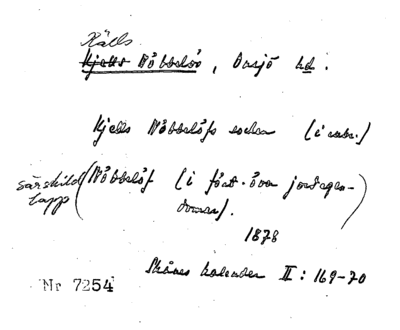 Källs
Kjells Nöbbelöv, Onsjö hd.
Kjells Nöbbelöfs socken (i rubr.)
särskild lapp (Nöbbelöf (i fört. över jordegendomar).)
1878
Skånes kalender II: 169-70
Nr 7254